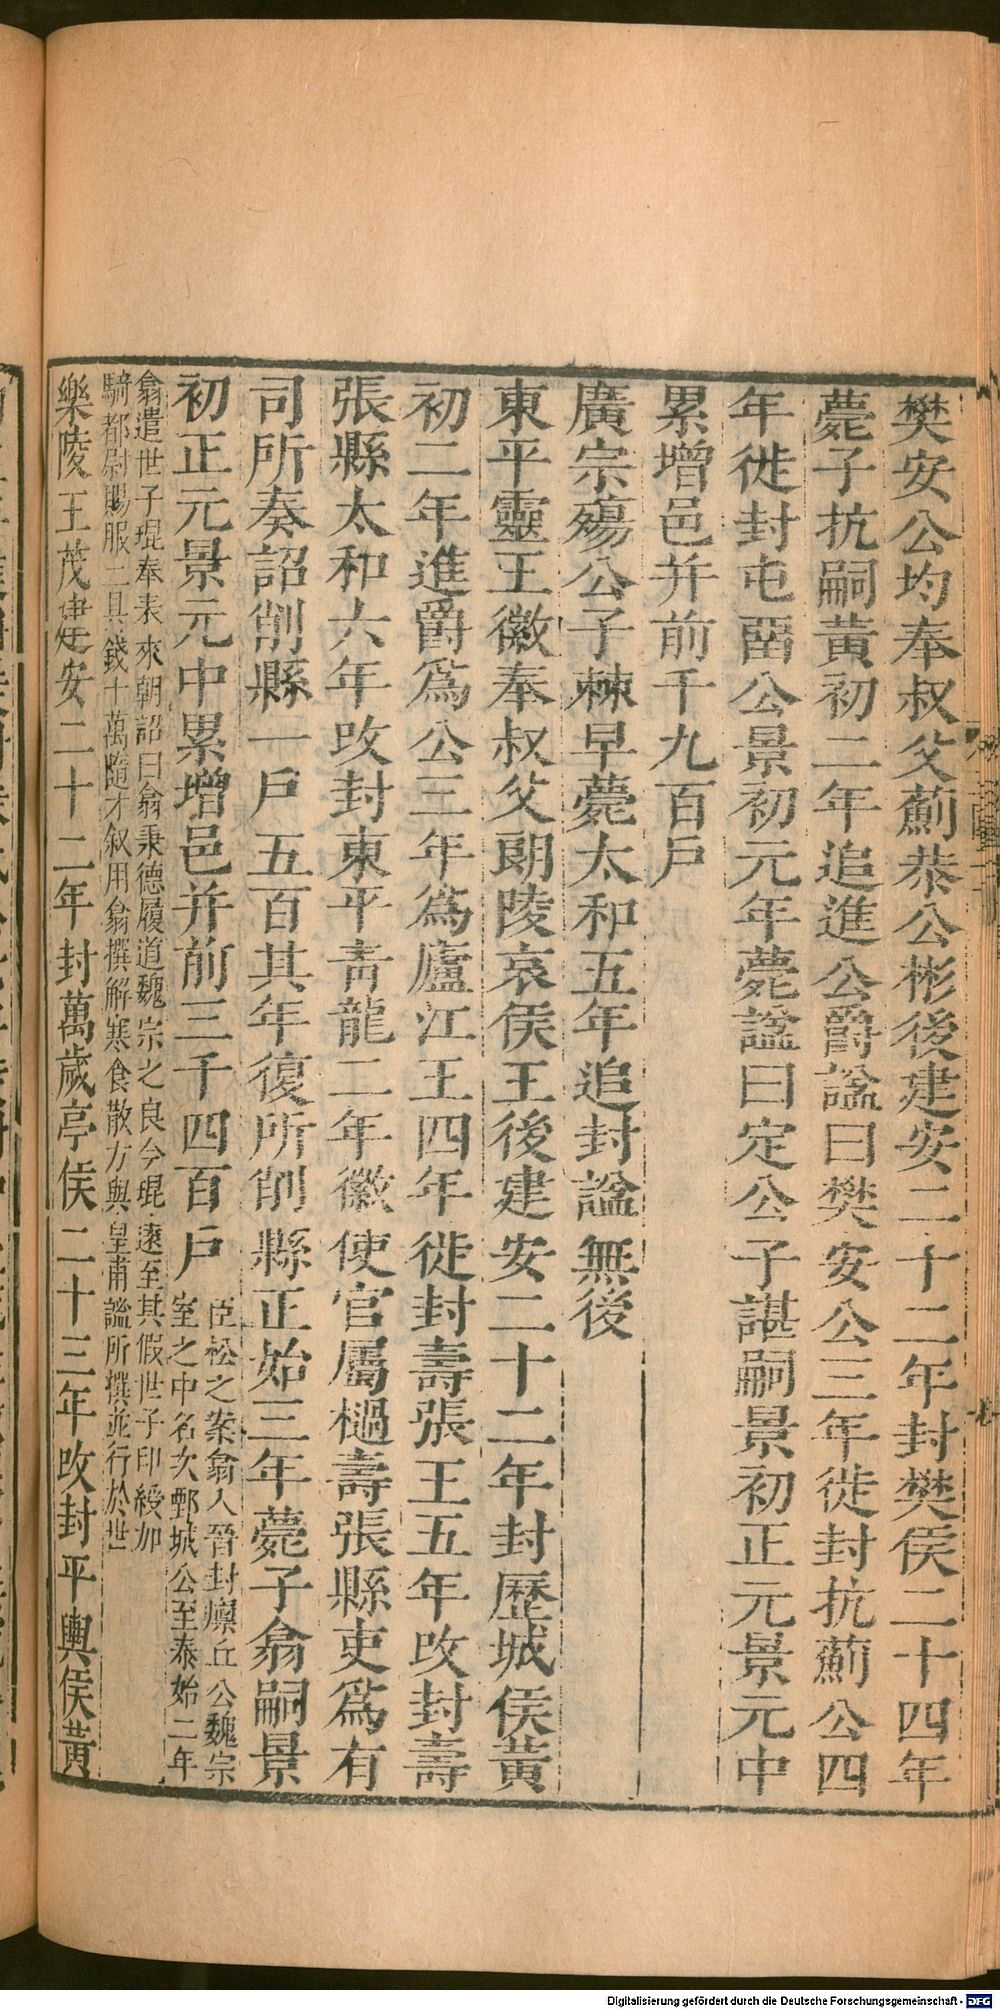 樊安公均奉叔父薊恭公彬後建安二十二年封樊侯二十四年
薨子抗嗣黃初二年追進公爵諡曰樊安公三年徙封抗薊公四
年徙封屯畱公景初元年薨諡曰定公子諶嗣景初正元景元中
累增邑并前千九百戶
廣宗殤公子棘早薨太和五年追封諡無後
東平靈王徽奉叔父朗陵哀侯王後建安二十二年封歷城侯黃
初二年進爵爲公三年爲廬江王四年徙封壽張王五年改封壽
張縣太和六年改封東平青龍二年徽使官屬檛壽張縣吏爲有
司所奏詔削縣一戶五百其年復所削縣正始三年薨子翕嗣景
初正元景元中累增邑并前三千四百戶
臣松之案翕入晉封廩丘公魏宗
室之中名次鄄城公至泰始二年
翕遣世子琨奉表來朝詔曰翕秉德履道魏宗之良今琨遠至其假世子印綬加
騎都尉賜服一具錢十萬隨才叙用翕撰解寒食散方與皇甫謐所撰並行於世
樂陵王茂建安二十二年封萬歲亭侯二十三年改封平輿侯黃
Digitalisierung gefördert durch die Deutsche Forschungsgemeinschaft - DFG